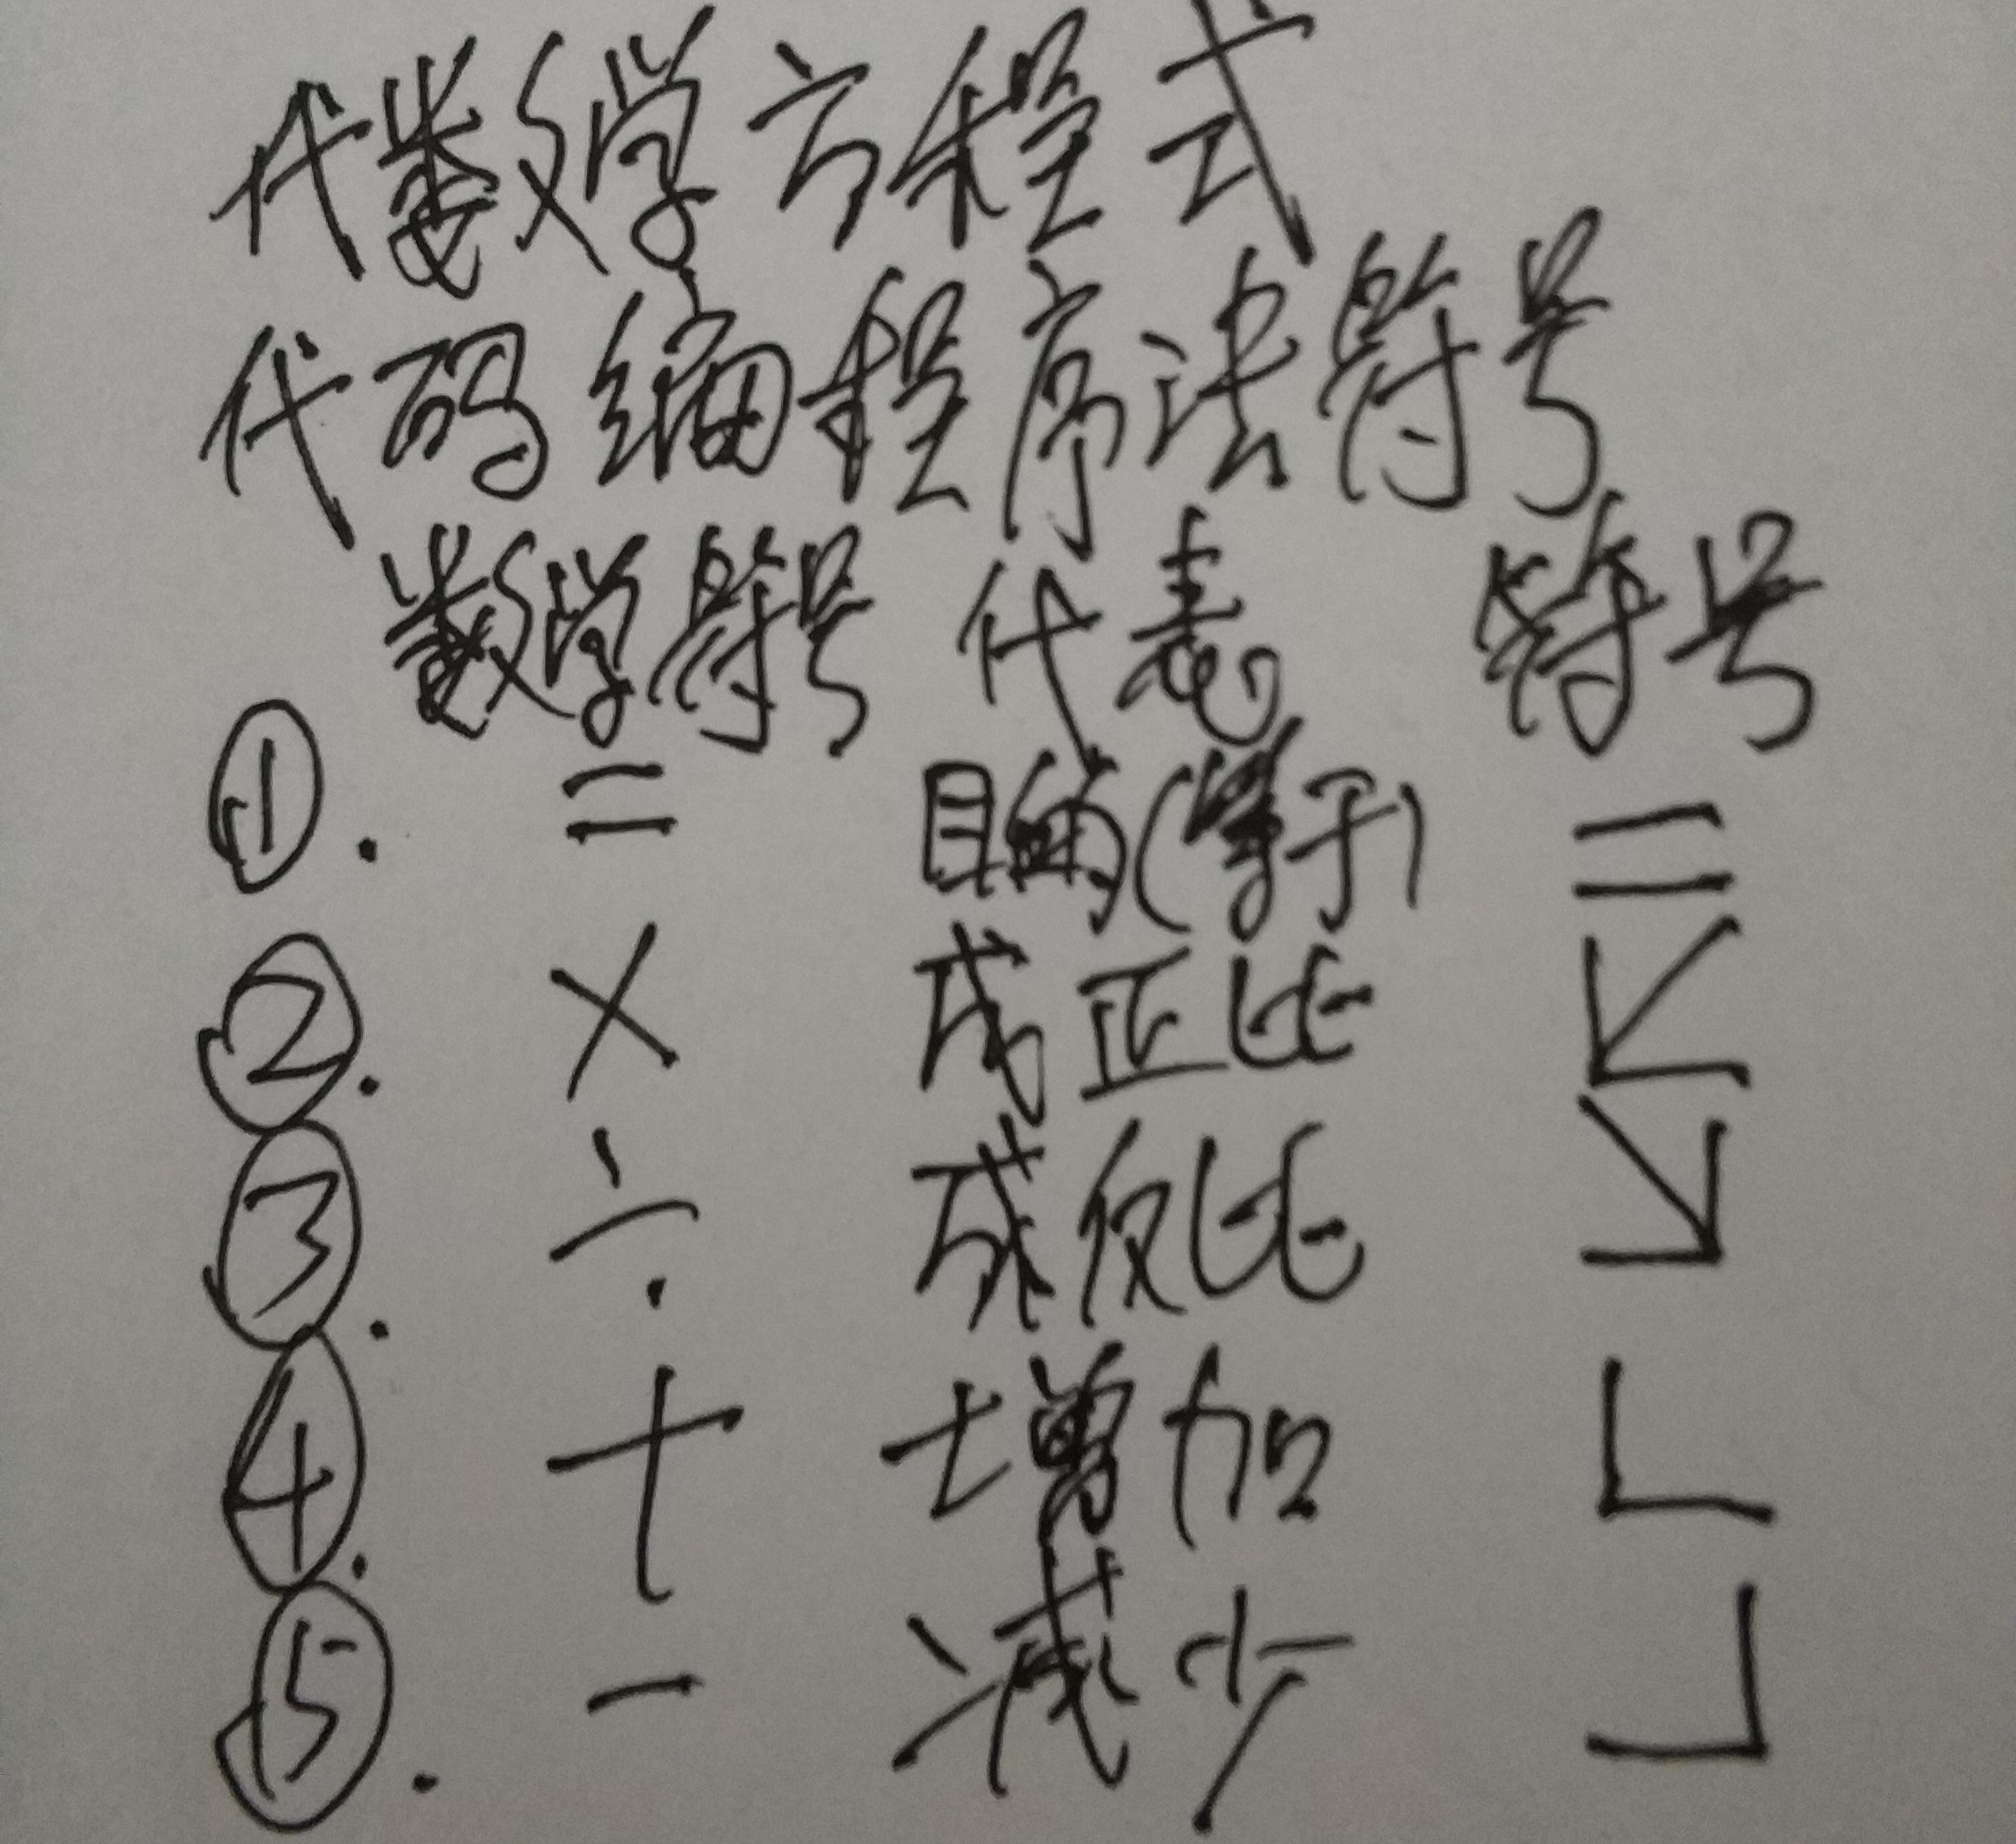 代数学方程式
代码编程序法符号
数学符号 代表 符号
①. = 目的(等于) =
②. × 成正比 ↙
③. ÷ 成反比 ↘
④. + 增加 ∟
⑤. - 减少 ⌟